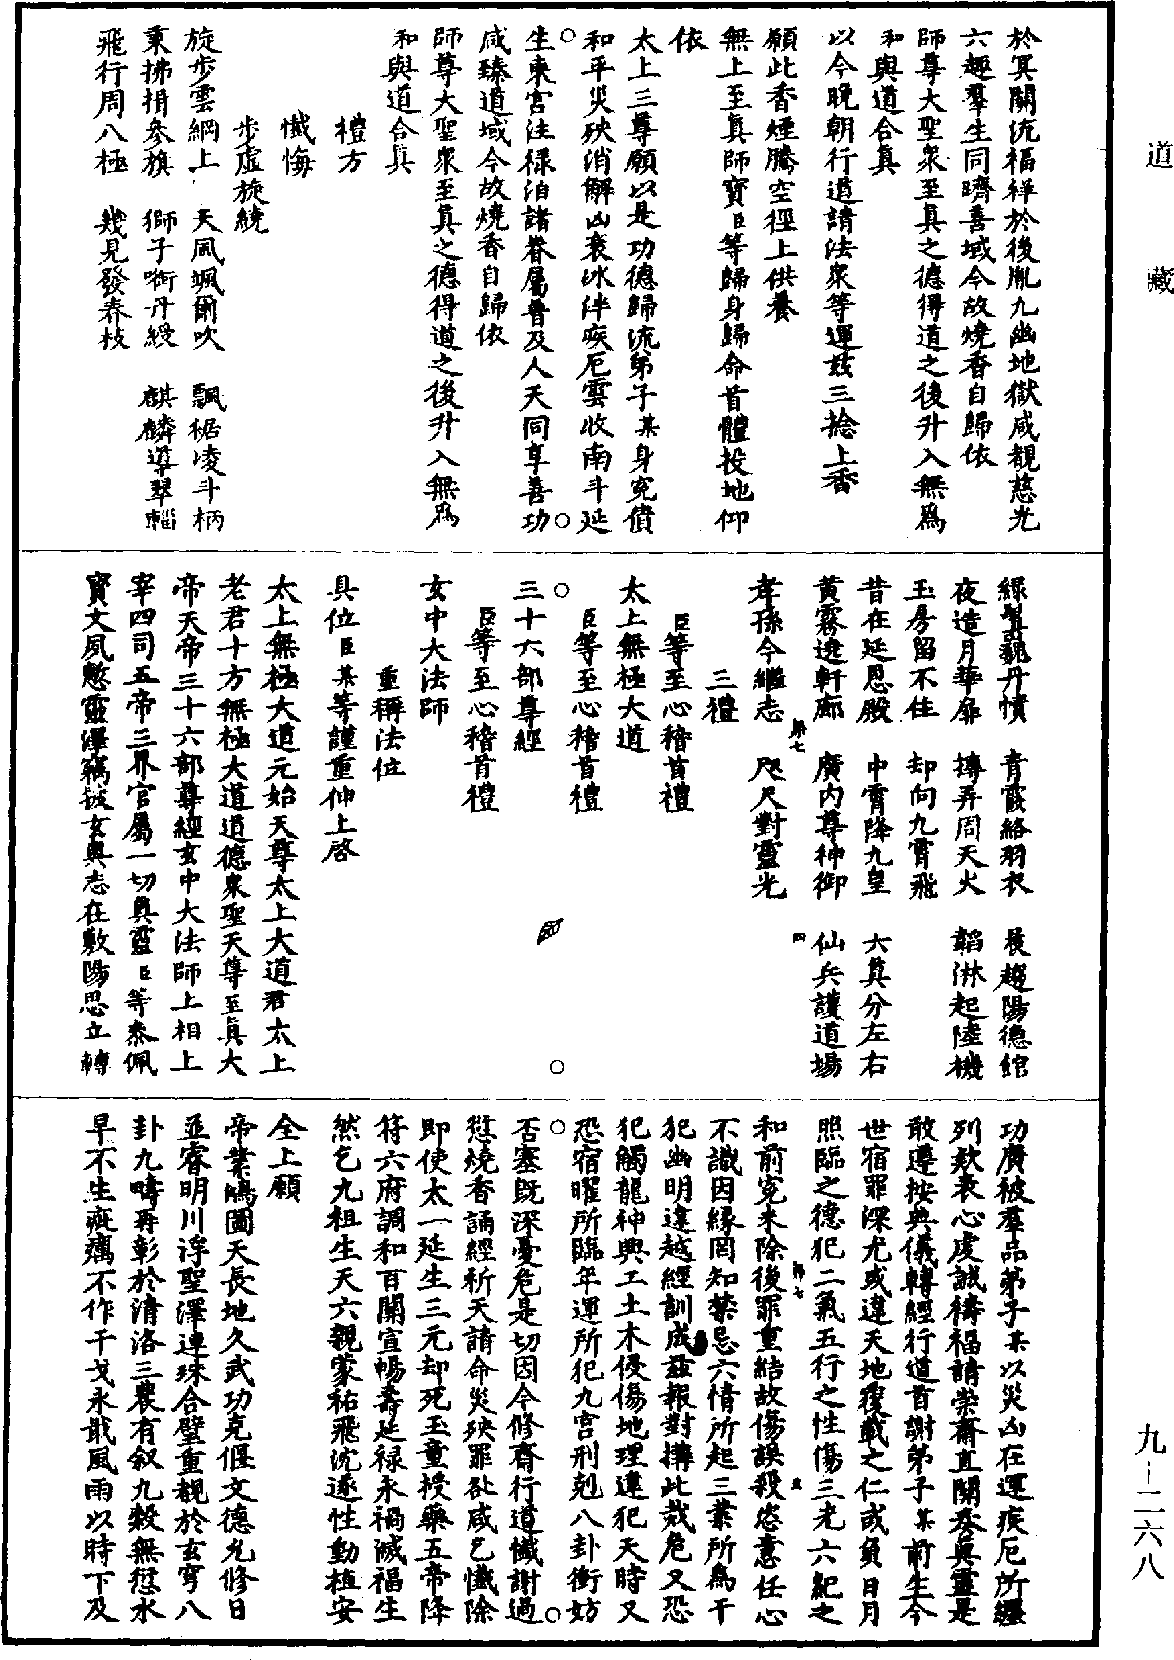 道藏
於冥關流福祥於後胤九幽地獄咸覩慈光
六趣羣生同躋善域今故燒香自歸依
師尊大聖衆至真之德得道之後升入無爲
和與道合真
以今晚朝行道請法衆等運兹三捻上香
願此香煙騰空徑上供養
無上至真師寶臣等歸身歸命首體投地仰
依
太上三尊願以是功德歸流弟子某身宛債
和平災殃消解凶衰冰泮疾厄雲收南斗延
生東宫注禄洎諸眷屬普及人天同享善功
咸臻道域今故燒香自歸依
師尊大聖衆至真之德得道之後升入無爲
和與道合真
禮方
懺悔
步虛旋繞
旋步雲綱上 天風颯爾吹 飄裾凌斗柄
秉拂揖參旗 獅子銜丹綬 麒麟導翠輜
飛行周八極 幾見發春枝
綠鬢巍丹幘 青霞絡羽衣 晨趨陽德館
夜造月華扉 搏弄周天火 韜淋起陸機
玉房留不住 却向九霄飛
昔在延恩殿 中霄降九皇 六真分左右
黄霧遶軒廊 廣内尊神御 仙兵護道場
孝孫今繼志 咫尺對靈光
三禮
臣等至心稽首禮
太上無極大道
臣等至心稽首禮
三十六部尊經
臣等至心稽首禮
玄中大法師
重稱法位
具位臣某等謹重伸上啓
太上無極大道元始天尊太上大道君太上
老君十方無極大道道德衆聖天尊至真大
帝天帝三十六部尊經玄中大法師上相上
宰四司五帝三界官屬一切真靈臣等忝佩
寶文夙慜靈澤竊披玄奥志在敷陽思立轉
功廣被羣品弟子某以災凶在運疾厄所纏
列款衷心虔誠禱福請崇齋直關奏真靈是
敢遵按典儀轉經行道首謝弟子某前生今
世宿罪深尤或違天地覆載之仁或負日月
照臨之德犯二氣五行之性傷三光六紀之
和前寃未除後罪重結故傷誤殺恣意任心
不識因緣罔知禁忌六情所起三業所爲干
犯幽明違越經訓成兹報對搆此哉危又恐
犯觸龍神興工土木侵傷地理違犯天時又
恐宿曜所臨年運所犯九宫刑剋八卦衝妨
否塞既深憂危是切因今修齋行道懺謝過
愆燒香誦經祈天請命災殃罪咎咸乞懺除
即使太一延生三元却死玉童授藥五帝降
符六府調和百關宣暢壽延禄永禍滅福生
然乞九祖生天六親蒙祐飛沈遂性動植安
全上願
帝業鴻圖天長地久武功克偃文德允修日
並睿明川浮聖澤連珠合璧重覩於玄穹八
卦九疇再彰於清洛三農有叙九穀無愆水
旱不生疵癘不作干戈永戢風雨以時下及
九-二六八